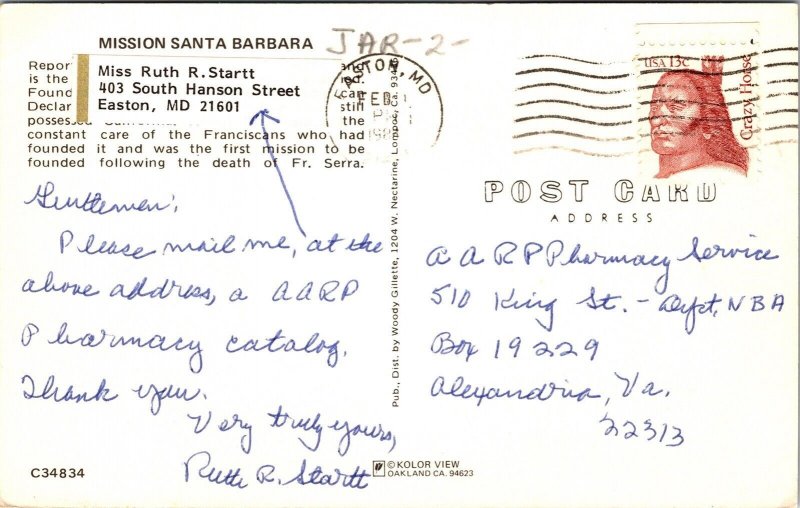 MISSION SANTA BARBARA
JAR-2-
Repor
is the
Found
Declar still
possess the
constant care of the Franciscans who had
founded it and was the first mission to be
founded following the death of Fr. Serra.
Miss Ruth R. Startt
403 South Hanson Street
Easton, MD 21601
EASTON, MD
FEB
USA 13c
Crazy Horse
POST CARD
ADDRESS
Gentlemen:
Please mail me, at the
above address, a AARP
Pharmacy catalog.
Thank you.
Very truly yours,
Ruth R. Startt
Pub., Dist. by Woody Gillette, 1204 W. Nectarine, Lompoc, Ca. 93436
AARP Pharmacy Service
510 King St. - Dept. NBA
Box 19229
Alexandria, Va.
22313
C34834
© KOLOR VIEW
OAKLAND CA. 94623